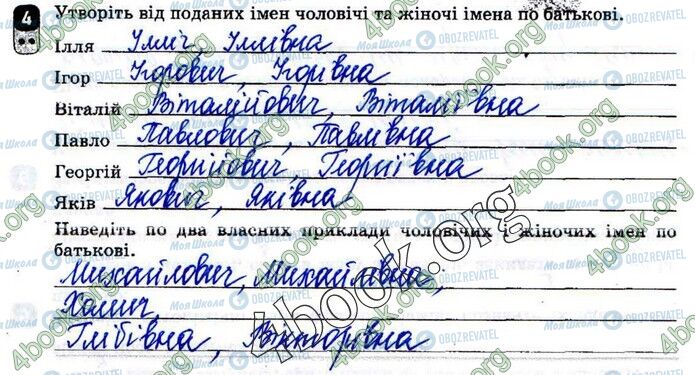 4 Утворіть від поданих імен чоловічі та жіночі імена по батькові.
Ілля Ілліч, Іллівна
Ігор Ігорович, Ігорівна
Віталій Віталійович, Віталіївна
Павло Павлович, Павлівна
Георгій Георгійович, Георгіївна
Яків Якович, Яківна
Наведіть по два власних приклади чоловічих жіночих імен по
батькові.
Михайлович, Михайлівна,
Хомич,
Глібівна, Вікторівна
4book.org
Моя Школа OBOZREVATEL